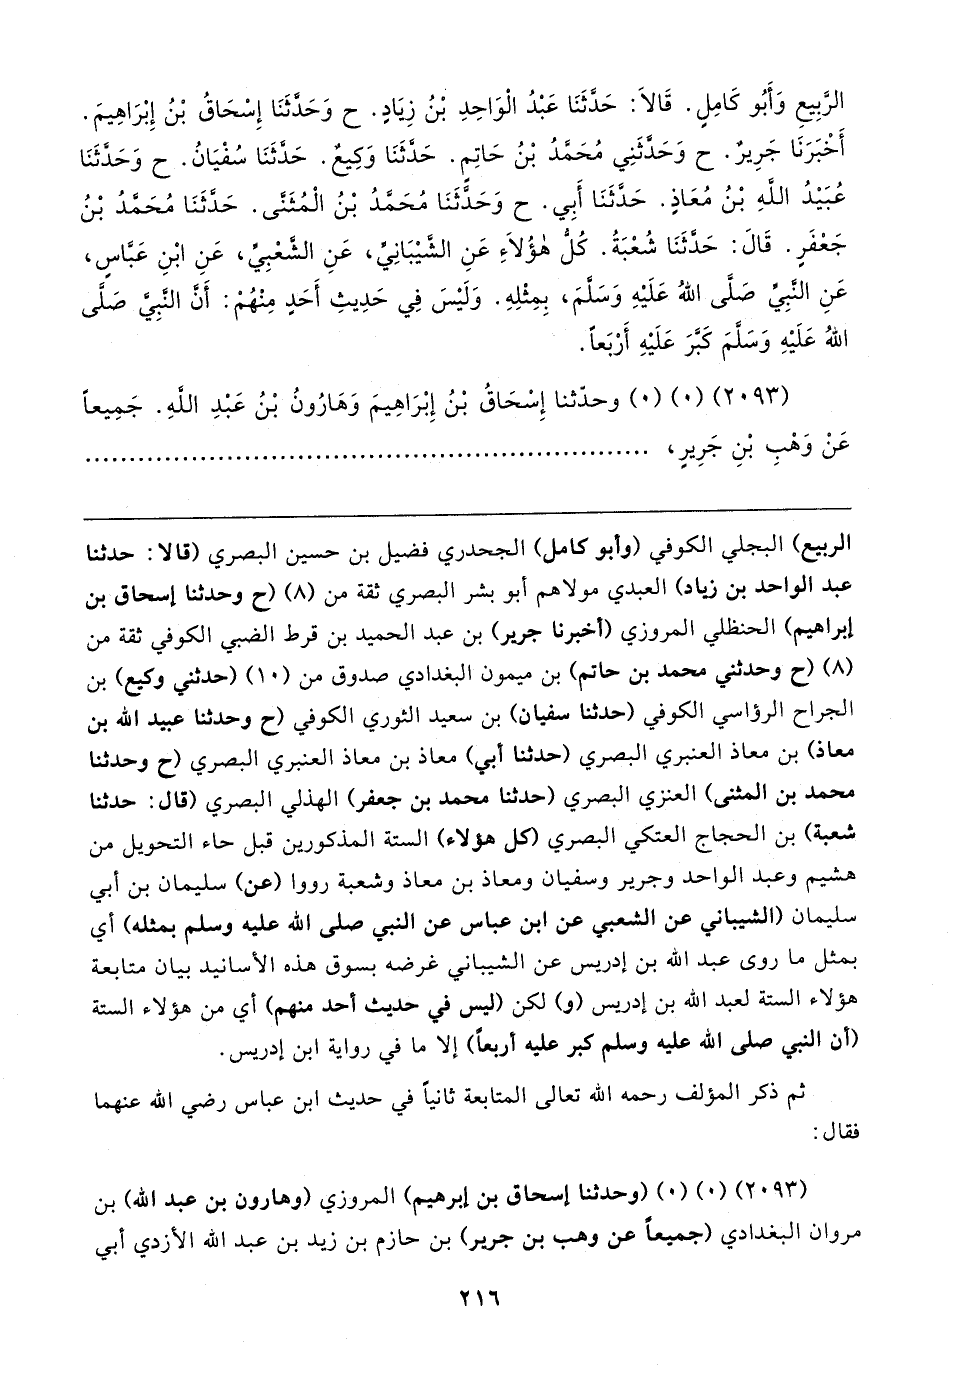 الرَّبِيعِ وَأَبُو كَامِلٍ. قَالاَ: حَدَّثَنَا عَبْدُ الْوَاحِدِ بْنُ زِيَادٍ. ح وَحَدَّثَنَا إِسْحَاقُ بْنُ إِبْرَاهِيمَ.
أَخْبَرَنَا جَرِيرٌ. ح وَحَدَّثَنِي مُحَمَّدُ بْنُ حَاتِمٍ. حَدَّثَنَا وَكِيعٌ. حَدَّثَنَا سُفْيَانُ. ح وَحَدَّثَنَا
عُبَيْدُ اللَّهِ بْنُ مُعَاذٍ. حَدَّثَنَا أَبِي. ح وَحَدَّثَنَا مُحَمَّدُ بْنُ الْمُثَنَّى. حَدَّثَنَا مُحَمَّدُ بْنُ
جَعْفَرٍ. قَالَ: حَدَّثَنَا شُعْبَةُ. كُلُّ هٰؤُلاَءِ عَنِ الشَّيْبَانِيِّ، عَنِ الشَّعْبِيِّ، عَنِ ابْنِ عَبَّاسٍ،
عَنِ النَّبِيِّ صَلَّى اللهُ عَلَيْهِ وَسَلَّمَ، بِمِثْلِهِ. وَلَيْسَ فِي حَدِيثِ أَحَدٍ مِنْهُمْ: أَنَّ النَّبِيَّ صَلَّى
اللهُ عَلَيْهِ وَسَلَّمَ كَبَّرَ عَلَيْهِ أَرْبَعاً.
(٢٠٩٣) (٠) (٠) وحدّثنا إِسْحَاقُ بْنُ إِبْرَاهِيمَ وَهَارُونُ بْنُ عَبْدِ اللَّهِ. جَمِيعاً
عَنْ وَهْبِ بْنِ جَرِيرٍ، ................................................................
الربيع) البجلي الكوفي (وأبو كامل) الجحدري فضيل بن حسين البصري (قالا: حدثنا
عبد الواحد بن زياد) العبدي مولاهم أبو بشر البصري ثقة من (٨) (ح وحدثنا إسحاق بن
إبراهيم) الحنظلي المروزي (أخبرنا جرير) بن عبد الحميد بن قرط الضبي الكوفي ثقة من
(٨) (ح وحدثني محمد بن حاتم) بن ميمون البغدادي صدوق من (١٠) (حدثني وكيع) بن
الجراح الرؤاسي الكوفي (حدثنا سفيان) بن سعيد الثوري الكوفي (ح وحدثنا عبيد الله بن
معاذ) بن معاذ العنبري البصري (حدثنا أبي) معاذ بن معاذ العنبري البصري (ح وحدثنا
محمد بن المثنى) العنزي البصري (حدثنا محمد بن جعفر) الهذلي البصري (قال: حدثنا
شعبة) بن الحجاج العتكي البصري (كل هؤلاء) الستة المذكورين قبل حاء التحويل من
هشيم وعبد الواحد وجرير وسفيان ومعاذ بن معاذ وشعبة رووا (عن) سليمان بن أبي
سليمان (الشيباني عن الشعبي عن ابن عباس عن النبي صلى الله عليه وسلم بمثله) أي
بمثل ما روى عبد الله بن إدريس عن الشيباني غرضه بسوق هذه الأسانيد بيان متابعة
هؤلاء الستة لعبد الله بن إدريس (و) لكن (ليس في حديث أحد منهم) أي من هؤلاء الستة
(أن النبي صلى الله عليه وسلم كبر عليه أربعاً) إلا ما في رواية ابن إدريس.
ثم ذكر المؤلف رحمه الله تعالى المتابعة ثانياً في حديث ابن عباس رضي الله عنهما
فقال:
(٢٠٩٣) (٠) (٠) (وحدثنا إسحاق بن إبرهيم) المروزي (وهارون بن عبد الله) بن
مروان البغدادي (جميعاً عن وهب بن جرير) بن حازم بن زيد بن عبد الله الأزدي أبي
٢١٦